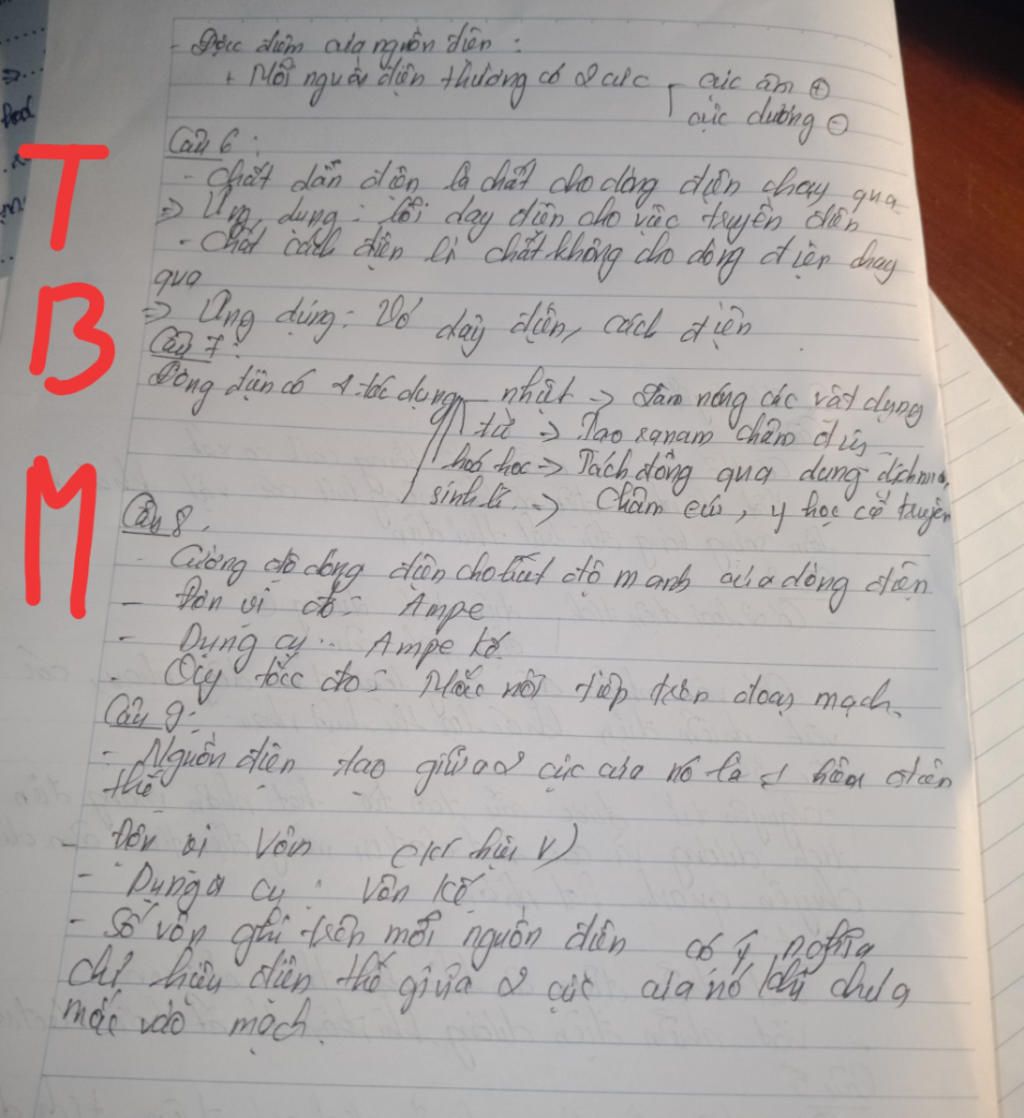 - Đặc điểm của nguồn điện :
+ Mỗi nguồn điện thường có 2 cực cực âm ⊕
cực dương ⊖
Câu 6 :
- Chất dẫn điện là chất cho dòng điện chạy qua
=> Ứng dụng : lõi dây điện cho việc truyền điện
- Chất cách điện là chất không cho dòng điện chạy
qua
=> Ứng dụng : Vỏ dây điện, cách điện
Câu 7 :
Dòng điện có tác dụng nhiệt -> Làm nóng các vật dụng
từ => Tạo ra nam châm điện
hoá học => Tách đồng qua dung dịch
sinh lí => Châm cứu, y học cổ truyền
Câu 8.
- Cường độ dòng điện cho biết độ mạnh của dòng điện
- Đơn vị đo : Ampe
- Dụng cụ : Ampe kế
- Quy tắc đo : Mắc nối tiếp trên đoạn mạch.
Câu 9 :
- Nguồn điện tạo giữa 2 cực của nó là 1 hiệu điện
thế
- Đơn vị Vôn (kí hiệu V)
- Dụng cụ : Vôn kế
- Số vôn ghi trên mỗi nguồn điện có ý nghĩa
chỉ hiệu điện thế giữa 2 cực của nó khi chưa
mắc vào mạch.
T
B
M